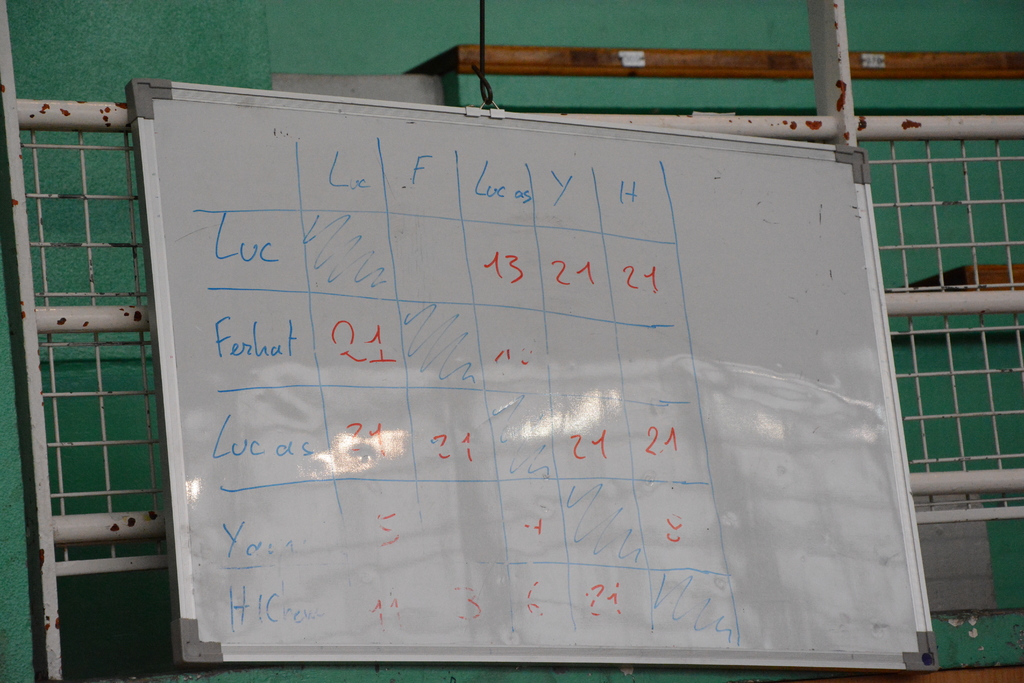 Luc F Lucas Y H
Luc 13 21 21
Ferhat 21
Lucas 21 21 21 21
5 8
11 3 6 21